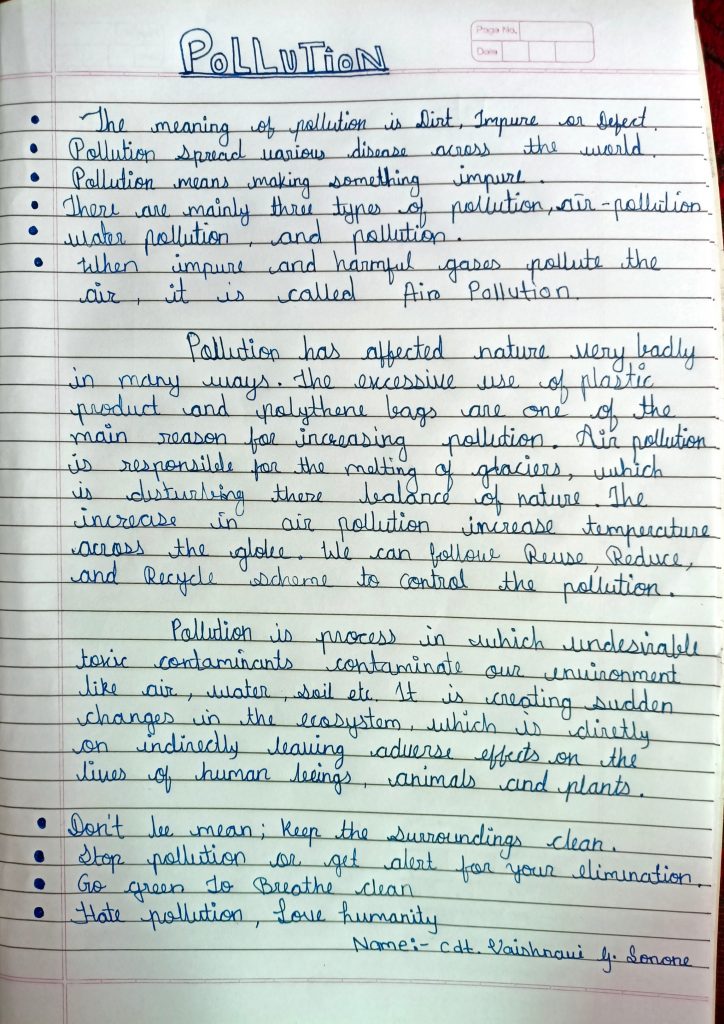 Page No.
Date
POLLUTION
• The meaning of pollution is Dirt, Impure or Defect.
• Pollution spread various disease across the world.
• Pollution means making something impure.
• There are mainly three types of pollution, air-pollution
• water pollution, and pollution.
• When impure and harmful gases pollute the
air, it is called Air Pollution.
Pollution has affected nature very badly
in many ways. The excessive use of plastic
product and polythene bags are one of the
main reason for increasing pollution. Air pollution
is responsible for the melting of glaciers, which
is disturbing there balance of nature The
increase in air pollution increase temperature
across the globe. We can follow Reuse, Reduce,
and Recycle scheme to control the pollution.
Pollution is process in which undesirable
toxic contaminants contaminate our environment
like air, water, soil etc. It is creating sudden
changes in the ecosystem, which is diretly
on indirectly leaving adverse effects on the
lives of human beings, animals and plants.
• Don't be mean; Keep the surroundings clean.
• Stop pollution or get alert for your elimination.
• Go green To Breathe clean
• Hate pollution, Love humanity
Name:- Cdt. Vaishnavi G. Sonone